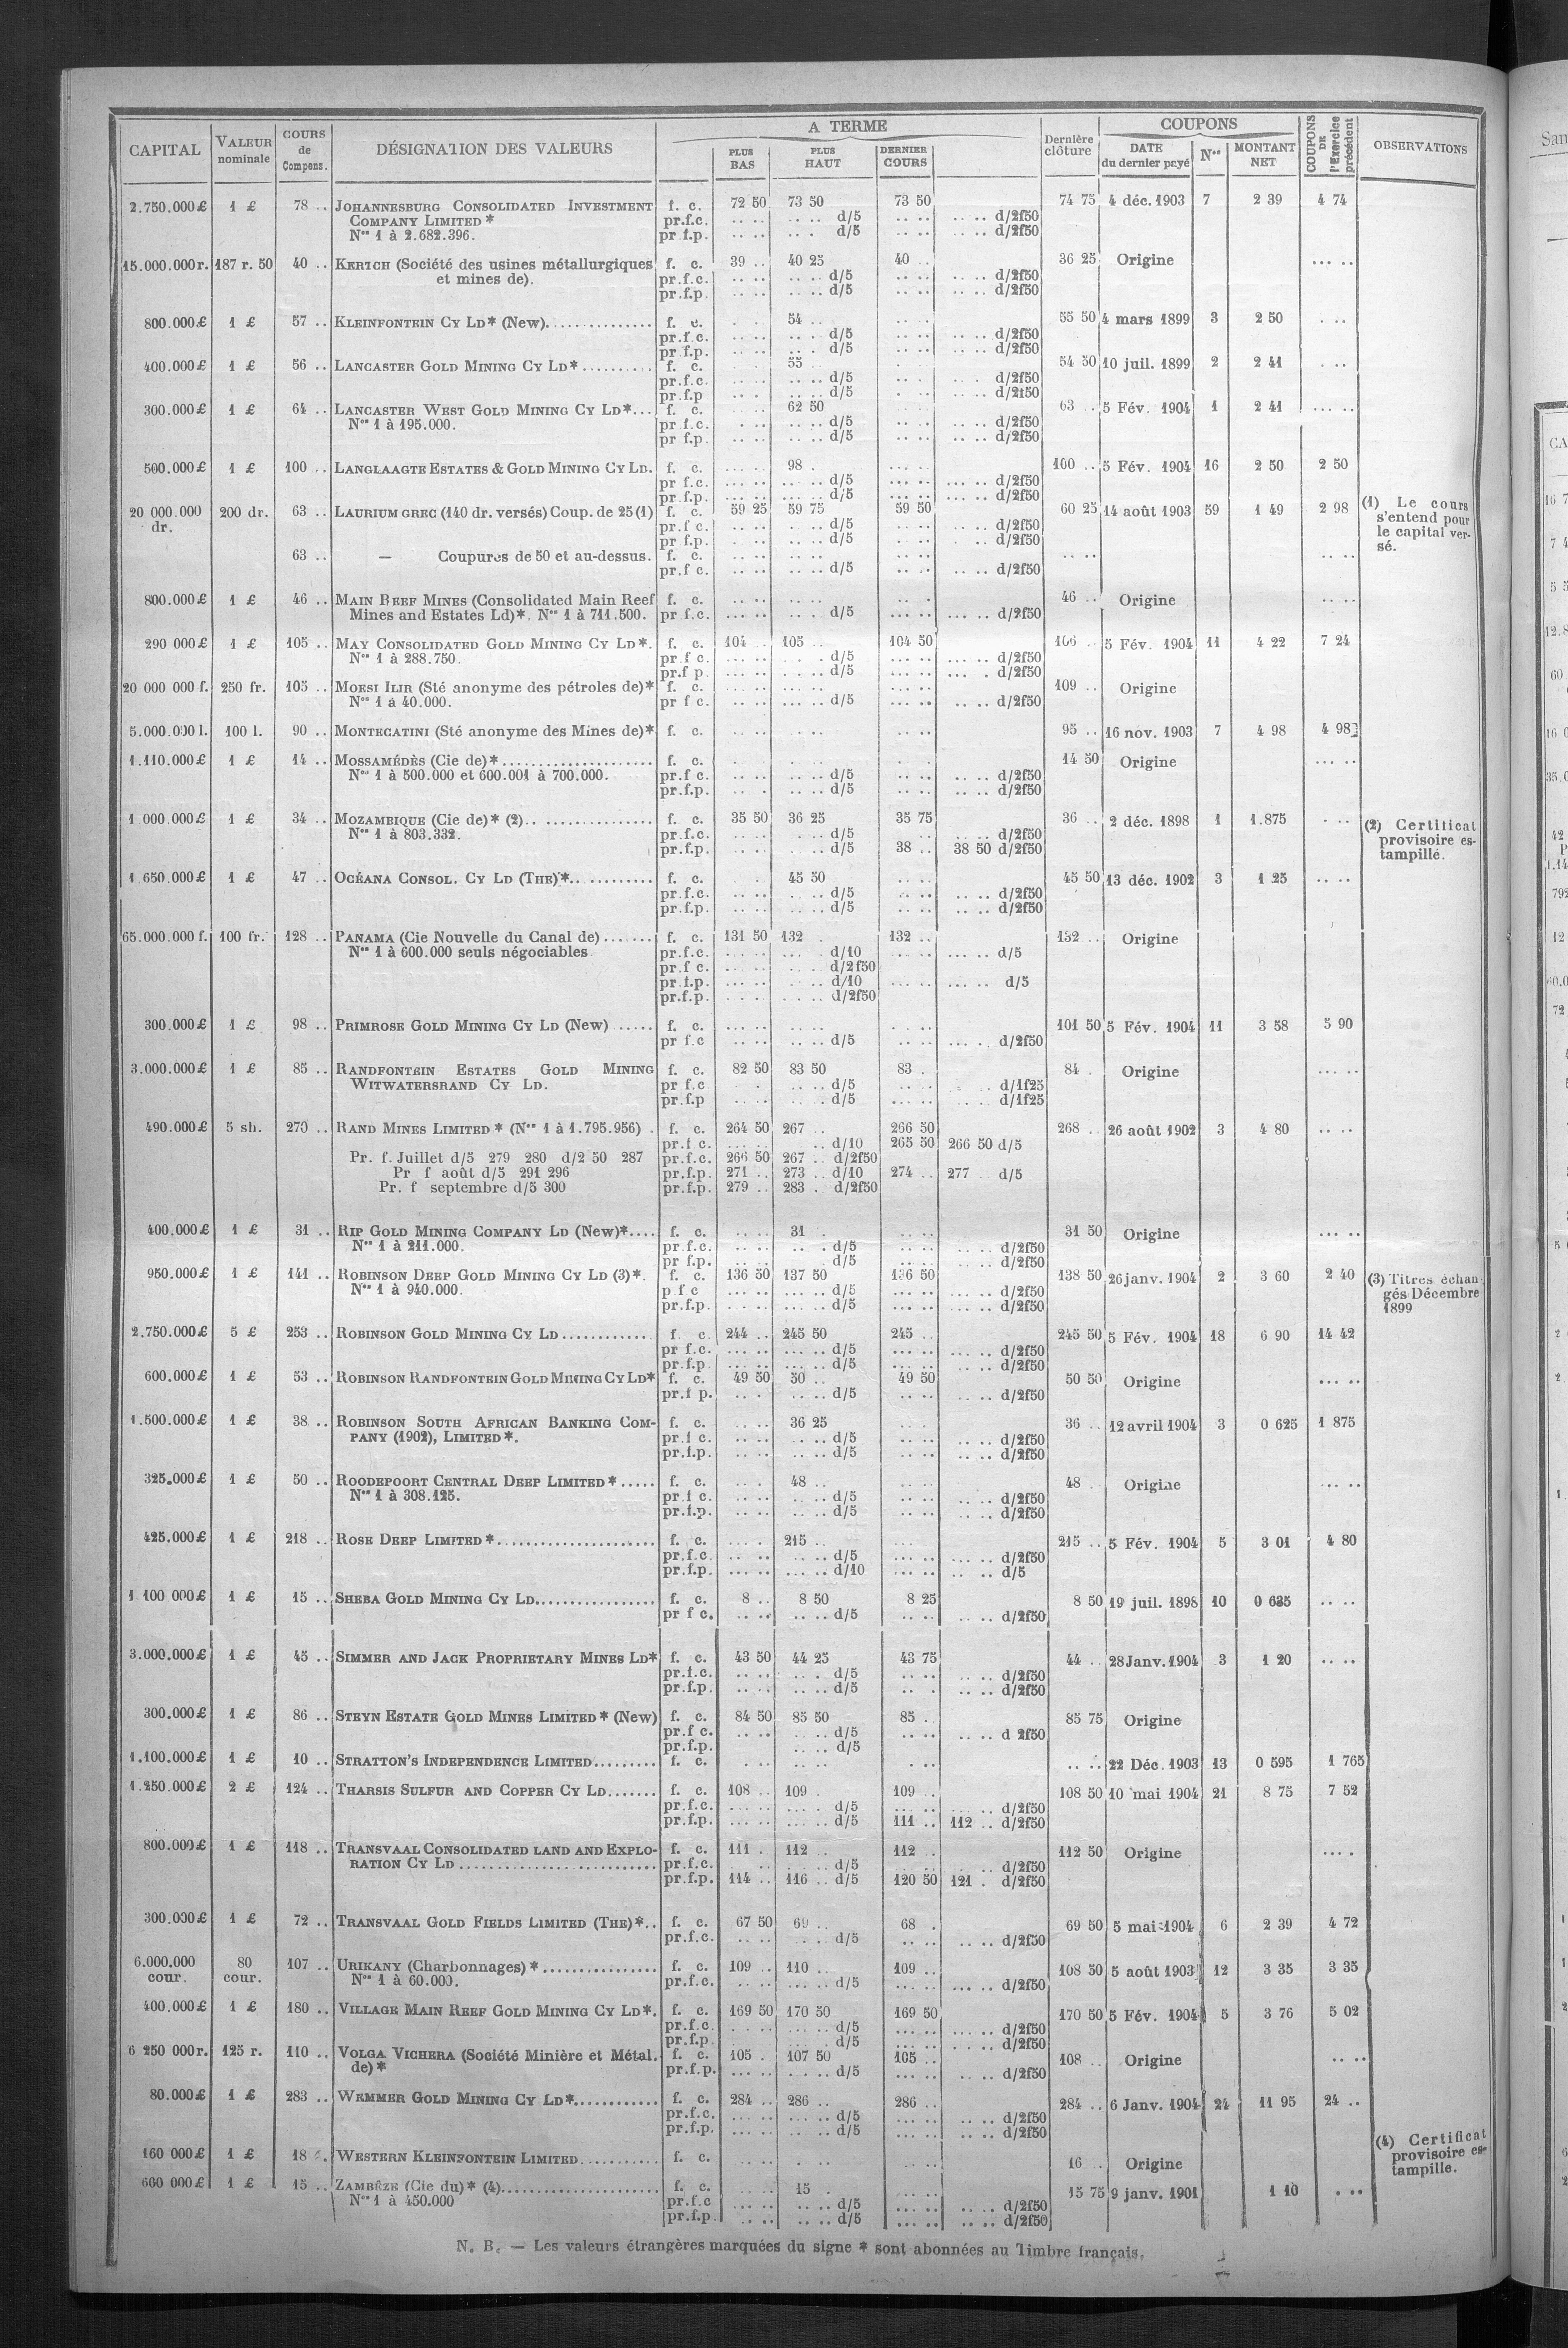 CAPITAL | VALEUR nominale | COURS de Compens. | DÉSIGNATION DES VALEURS | A TERME | PLUS BAS | PLUS HAUT | DERNIER COURS | Dernière clôture | COUPONS | DATE du dernier payé | Nos | MONTANT NET | COUPONS DE l'Exercice précédent | OBSERVATIONS
2.750.000£ 1 £ 78 .. JOHANNESBURG CONSOLIDATED INVESTMENT f. c. 72 50 73 50 73 50 74 75 4 déc. 1903 7 2 39 4 74
COMPANY LIMITED * pr.f.c. .. .. .. .. d/5 .. .. .. .. d/2f50
Nos 1 à 2.682.396. pr f.p. .. .. .. . d/5 .. .. .. .. d/2f50
15.000.000r. 187 r. 50 40 .. KERTCH (Société des usines métallurgiques f. c. 39 .. 40 25 40 .. 36 25 Origine ... ..
et mines de). pr.f.c. .. .. .. .. d/5 .. .. .. .. d/2f50
pr.f.p. .. .. .. .. d/5 .. .. .. .. d/2f50
800.000£ 1 £ 57 .. KLEINFONTEIN CY LD* (New)............... f. c. 54 .. 55 50 4 mars 1899 3 2 50 . ..
pr.f.c. .. .. .. . d/5 .. .. .. .. d/2f50
pr.f.p. .. .. .. . d/5 .. .. .. .. d/2f50
400.000£ 1 £ 56 .. LANCASTER GOLD MINING CY LD*.......... f. c. 55 . 54 50 10 juil. 1899 2 2 41 . ..
pr.f.c. .. .. .. .. d/5 .. . .. . d/2f50
pr.f.p .. . .. .. d/5 .. . .. .. d/2f50
300.000£ 1 £ 64 .. LANCASTER WEST GOLD MINING CY LD*... f. c. 62 50 63 .. 5 Fév. 1904 1 2 41 ... ..
Nos 1 à 195.000. pr f.c. .. .. .. .. d/5 .. .. .. .. d/2f50
pr f.p. .. .. .. .. d/5 .. .. .. .. d/2f50
500.000£ 1 £ 100 .. LANGLAAGTE ESTATES & GOLD MINING CY LD. f. c. 98 . 100 .. 5 Fév. 1904 16 2 50 2 50
pr f.c. .. .. .. .. d/5 ... .. ... .. d/2f50
pr.f.p. ... .. ... .. d/5 ... .. ... .. d/2f50
20 000.000 dr. 200 dr. 63 .. LAURIUM GREC (140 dr. versés) Coup. de 25 (1) f. c. 59 25 59 75 59 50 60 25 14 août 1903 59 1 49 2 98 (1) Le cours
s'entend pour
le capital ver-
sé.
pr.f c. .. .. .. .. d/5 .. .. .. .. d/2f50
pr f.p. .. .. .. .. d/5 .. .. . .. d/2f50
63 .. — Coupures de 50 et au-dessus. f. c. .. .. .. .. .. .. .. .. .. ..
pr.f c. .. .. .. .. d/5 .. . .. .. d/2f50
800.000£ 1 £ 46 .. MAIN REEF MINES (Consolidated Main Reef f. c. .. .. .. .. .. . 46 .. Origine .. ..
Mines and Estates Ld)*. Nos 1 à 711.500. pr f.c. ... .. .. .. d/5 ... .. ... .. d/2f50
290 000£ 1 £ 105 .. MAY CONSOLIDATED GOLD MINING CY LD*. f. c. 104 .. 105 .. 104 50 106 .. 5 Fév. 1904 11 4 22 7 24
Nos 1 à 288.750. pr.f c. ... .. . . d/5 ... .. ... .. d/2f50
pr.f p. ... .. .. .. d/5 ... .. ... . d/2f50
20 000 000 f. 250 fr. 105 .. MOESI ILIR (Sté anonyme des pétroles de)* f. c. 109 .. Origine
Nos 1 à 40.000. pr f c. ... .. ... .. d/5 ... .. .. .. d/2f50
5.000.000 l. 100 l. 90 .. MONTECATINI (Sté anonyme des Mines de)* f. c. .. .. .. .. .. .. 95 .. 16 nov. 1903 7 4 98 4 98
1.110.000£ 1 £ 14 .. MOSSAMÉDÈS (Cie de)*..................... f. c. 14 50 Origine ... ..
Nos 1 à 500.000 et 600.001 à 700.000. pr.f c. .. .. .. .. d/5 .. .. .. .. d/2f50
pr.f.p. .. . .. .. d/5 .. .. .. .. d/2f50
1 000.000£ 1 £ 34 .. MOZAMBIQUE (Cie de)* (2).. .............. f. c. 35 50 36 25 35 75 36 .. 2 déc. 1898 1 1.875 . .. (2) Certificat
provisoire es-
tampillé.
Nos 1 à 803.332. pr.f.c. .. .. . .. d/5 .. .. .. d/2f50
pr.f.p. .. .. .. d/5 38 .. 38 50 d/2f50
1 650.000£ 1 £ 47 .. OCÉANA CONSOL. CY LD (THE)*.. .......... f. c. 45 50 .. .. 45 50 13 déc. 1902 3 1 25 .. ..
pr.f.c. .. .. .. .. d/5 .. .. .. .. d/2f50
pr.f.p. .. .. .. .. d/5 .. .. .. .. d/2f50
65.000.000 f. 100 fr. 128 .. PANAMA (Cie Nouvelle du Canal de)....... f. c. 131 50 132 . 132 .. 132 .. Origine
Nos 1 à 600.000 seuls négociables pr.f.c. ... .. ... . d/10 ... .. ... .. d/5
pr.f c. ... .. . .. d/2f50
pr f.p. ... .. .. . d/10 ... .. ... .. d/5
pr.f.p. .. . . .. d/2f50
300.000£ 1 £ 98 .. PRIMROSE GOLD MINING CY LD (New) ..... f. c. ... .. .. .. . .. 101 50 5 Fév. 1904 11 3 58 5 90
pr f.c .. .. .. .. d/5 .. .. ... . d/2f50
3.000.000£ 1 £ 85 .. RANDFONTEIN ESTATES GOLD MINING f. c. 82 50 83 50 83 . 84 . Origine ... ..
WITWATERSRAND CY LD. pr f.c . .. .. d/5 .. .. . .. d/1f25
pr.f.p .. .. .. .. d/5 ... .. .. . d/1f25
490.000£ 5 sh. 270 .. RAND MINES LIMITED * (Nos 1 à 1.795.956) . f. c. 264 50 267 .. 266 50 268 .. 26 août 1902 3 4 80 .. ..
pr.f c. ... .. .. d/10 265 50 266 50 d/5
Pr. f. Juillet d/5 279 280 d/2 50 287 pr.f.c. 266 50 267 .. d/2f50
Pr f août d/5 291 296 pr.f.p. 271 .. 273 .. d/10 274 .. 277 . d/5
Pr. f septembre d/5 300 pr.f.p. 279 .. 283 . d/2f50
400.000£ 1 £ 31 .. RIP GOLD MINING COMPANY LD (New)*.... f. c. .. .. 31 . .. .. 31 50 Origine ... ..
Nos 1 à 211.000. pr.f.c. .. .. .. . d/5 .. .. .. .. d/2f50
pr f.p. .. .. d/5 .. .. .. .. d/2f50
950.000£ 1 £ 141 .. ROBINSON DEEP GOLD MINING CY LD (3)*. f. c. 136 50 137 50 136 50 138 50 26 janv. 1904 2 3 60 2 40 (3) Titres échan-
gés Décembre
1899
Nos 1 à 940.000. p f c ... .. ... .. d/5 ... .. .. .. d/2f50
pr.f.p. ... .. ... .. d/5 ... .. .. .. d/2f50
2.750.000£ 5 £ 253 .. ROBINSON GOLD MINING CY LD............. f. c. 244 .. 245 50 245 .. 245 50 5 Fév. 1904 18 6 90 14 42
pr f.c. ... .. ... .. d/5 ... .. ... .. d/2f50
pr.f.p. ... .. ... .. d/5 ... .. .. .. d/2f50
600.000£ 1 £ 53 .. ROBINSON RANDFONTEIN GOLD MINING CY LD* f. c. 49 50 50 .. 49 50 50 50 Origine ... ..
pr.f p. .. . ... .. d/5 .. .. .. .. d/2f50
1.500.000£ 1 £ 38 .. ROBINSON SOUTH AFRICAN BANKING COM- f. c. .. .. 36 25 .. . 36 .. 12 avril 1904 3 0 625 1 875
PANY (1902), LIMITED *. pr.f c. .. .. . .. d/5 .. .. .. .. d/2f50
pr.f.p. .. .. .. .. d/5 .. .. .. .. d/2f50
325.000£ 1 £ 50 .. ROODEPOORT CENTRAL DEEP LIMITED *..... f. c. .. . 48 .. 48 . Origine ... ..
Nos 1 à 308.125. pr.f c. .. .. .. .. d/5 .. .. .. .. d/2f50
pr.f.p. .. .. .. .. d/5 .. .. .. .. d/2f50
425.000£ 1 £ 218 .. ROSE DEEP LIMITED *...................... f. c. .. . 215 .. 215 .. 5 Fév. 1904 5 3 01 4 80
pr.f.c. .. .. .. .. d/5 ... .. ... .. d/2f50
pr.f.p. ... .. ... .. d/10 ... .. .. .. d/5
1 100 000£ 1 £ 15 .. SHEBA GOLD MINING CY LD................ f. c. 8 .. 8 50 8 25 8 50 19 juil. 1898 10 0 625 .. ..
pr f c. .. .. .. .. d/5 .. .. .. .. d/2f50
3.000.000£ 1 £ 45 .. SIMMER AND JACK PROPRIETARY MINES LD* f. c. 43 50 44 25 43 75 44 .. 28 Janv. 1904 3 1 20 .. ..
pr.f.c. .. .. .. . d/5 .. .. .. .. d/2f50
pr.f.p. .. .. .. .. d/5 .. . .. .. d/2f50
300.000£ 1 £ 86 .. STEYN ESTATE GOLD MINES LIMITED * (New) f. c. 84 50 85 50 85 . 85 75 Origine
pr.f c. .. .. .. .. d/5 .. .. .. .. d 2f50
pr.f.p. .. .. d/5
1.100.000£ 1 £ 10 .. STRATTON'S INDEPENDENCE LIMITED......... f. c. . .. .. .. . .. .. .. 22 Déc. 1903 13 0 595 1 765
1.250.000£ 2 £ 124 .. THARSIS SULFUR AND COPPER CY LD....... f. c. 108 .. 109 . 109 .. 108 50 10 mai 1904 21 8 75 7 52
pr.f.c. ... .. ... . d/5 ... .. ... .. d/2f50
pr.f.p. ... .. ... .. d/5 111 .. 112 .. d/2f50
800.000£ 1 £ 118 .. TRANSVAAL CONSOLIDATED LAND AND EXPLO- f. c. 111 . 112 .. 112 .. 112 50 Origine ... .
RATION CY LD........................... pr.f.c. .. .. .. d/5 .. .. .. .. d/2f50
pr.f.p. 114 .. 116 .. d/5 120 50 121 . d/2f50
300.000£ 1 £ 72 .. TRANSVAAL GOLD FIELDS LIMITED (THE)*.. f. c. 67 50 69 .. 68 . 69 50 5 mai 1904 6 2 39 4 72
pr.f.c. .. .. .. .. d/5 .. .. .. .. d/2f50
6.000.000 cour. 80 cour. 107 .. URIKANY (Charbonnages) *................ f. c. 109 .. 110 .. 109 .. 108 50 5 août 1903 12 3 35 3 35
Nos 1 à 60.000. pr.f.c. .. .. ... .. d/5 .. .. ... .. d/2f50
400.000£ 1 £ 180 .. VILLAGE MAIN REEF GOLD MINING CY LD*. f. c. 169 50 170 50 169 50 170 50 5 Fév. 1904 5 3 76 5 02
pr.f.c. . .. .. ... .. d/5 ... .. ... .. d/2f50
pr.f.p. .. .. d/5 ... .. .. .. d/2f50
6 250 000r. 125 r. 110 .. VOLGA VICHERA (Société Minière et Métal. f. c. 105 . 107 50 105 .. 108 .. Origine .. ..
de)* pr.f.p. ... .. . .. d/5 ... .. .. .. d/2f50
80.000£ 1 £ 283 .. WEMMER GOLD MINING CY LD*............ f. c. 284 .. 286 .. 286 .. 284 .. 6 Janv. 1904 24 11 95 24 ..
pr.f.c. ... .. ... .. d/5 ... .. .. .. d/2f50
pr.f.p. ... .. ... .. d/5 ... .. .. .. d/2f50
160 000£ 1 £ 18 .. WESTERN KLEINFONTEIN LIMITED........... f. c. 16 . Origine (4) Certificat
provisoire es-
tampille.
600 000£ 1 £ 15 .. ZAMBÈZE (Cie du)* (4)...................... f. c. 15 . 15 75 9 janv. 1901 1 10 . ..
Nos 1 à 450.000 pr.f.c ... .. .. .. d/5 ... .. .. .. d/2f50
pr.f.p. .. .. .. .. d/5 ... .. .. .. d/2f50
N. B. — Les valeurs étrangères marquées du signe * sont abonnées au Timbre français.